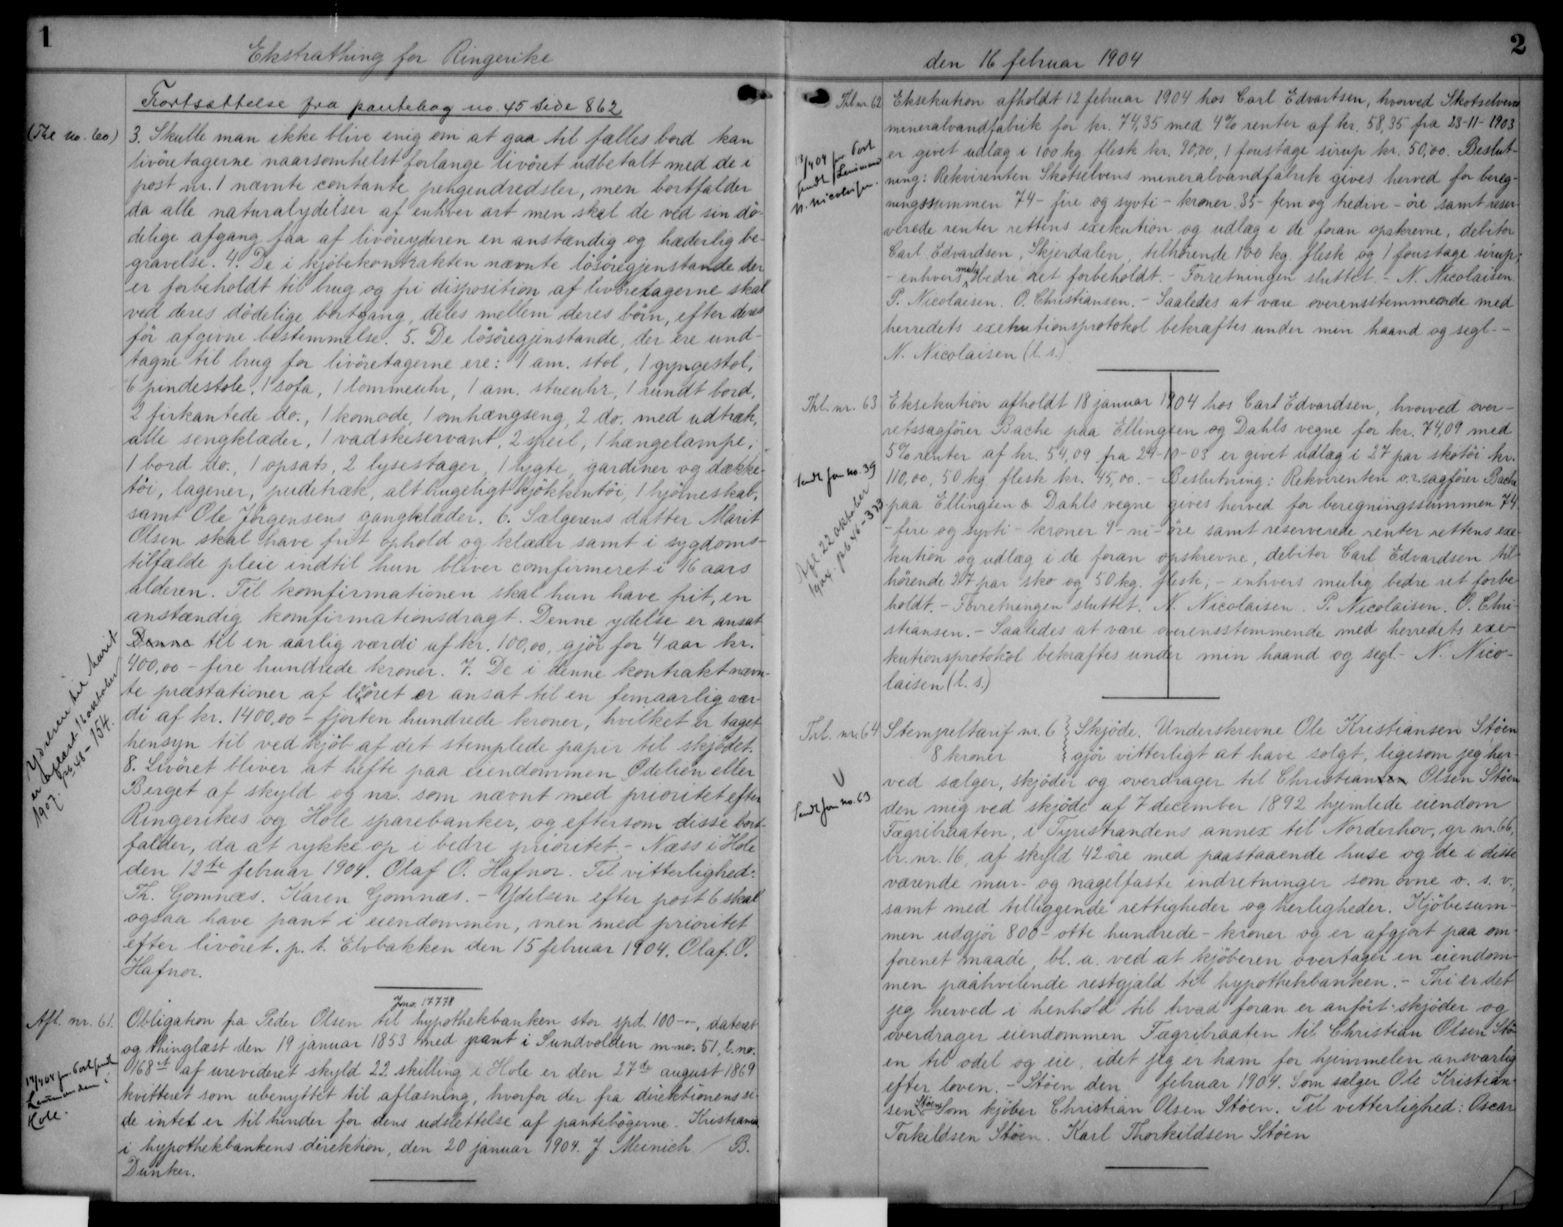 1
Ekstrathing for Ringerike
Fortsættelse fra pantebog no. 45 side 862
(Thl no. 60)
3. Skulle man ikke blive enig om at gaa til fælles bord kan
livöretagerne naarsomhelst forlange livöret udbetalt med de i
post nr. 1 nævnte contante pengeudredsler, men bortfalder
da alle naturalydelser af enhver art men skal de ved sin dö-
delige afgang faa af livöreyderen en anstændig og hæderlig be-
gravelse. 4. De i kjöbekontrakten nævnte lösöregjenstande der
er forbeholdt til brug og fri disposition af livöretagerne skal
ved deres dödelige bortgang, deles mellem deres börn, efter deres
för afgivne bestemmelse. 5. De lösöregjenstande, der ere und-
tagne til brug for livöretagerne ere: 1 am. stol, 1 gyngestol,
6 pindestole, 1 sofa, 1 lommeuhr, 1 am. stueuhr, 1 rundt bord,
2 firkantede do., 1 komode, 1 omhængseng, 2 do. med udtræk,
alle sengklæder, 1 vadskeservant, 2 speil, 1 hængelampe,
1 bord do., 1 opsats, 2 lysestager, 1 lygte, gardiner og dække-
töi, lagener, pudetræk, alt brugeligt kjökkentöi, 1 hjörneskab,
samt Ole Jörgensens gangklæder. 6. Sælgerens datter Marit
Olsen skal have frit ophold og klæder samt i sygdoms-
tilfælde pleie indtil hun bliver comfirmeret i 16 aars
alderen. Til komfirmationen skal hun have frit, en
anstændig komfirmationsdragt. Denne ydelse er ansat
Denne til en aarlig værdi af kr. 100,00, gjör for 4 aar kr.
400,00 - fire hundrede kroner. 7. De i denne kontrakt nævn-
te præstationer af livöret er ansat til en femaarlig vær-
di af kr. 1400,00 - fjorten hundrede kroner, hvilket er taget
hensyn til ved kjöb af det stemplede papir til skjödet.
8. Livöret bliver at hefte paa eiendommen Ødelien eller
Berget af skyld og nr. som nævnt med prioritet efter
Ringerikes og Hole sparebanker, og eftersom disse bort-
falder, da at rykke op i bedre prioritet. - Næss i Hole
den 12te februar 1904. Olaf O. Hafnor. Til vitterlighed:
Th. Gomnæs. Karen Gomnæs. - Ydelsen efter post 6 skal
ogsaa have pant i eiendommen, men med prioritet
efter livöret. p. t. Elvbakken den 15 februar 1904. Olaf. O.
Hafnor.
Ydelsen til Marit
er aflæst 16 oktober
1907. pb 48-154.
Afl. nr. 61.
Jno. 17778
Obligation fra Peder Olsen til hypothekbanken stor spd. 100--, dateret
og thinglæst den 19 januar 1853 med pant i Sundvolden m-no. 51, l. no.
168 af urevideret skyld 22 skilling i Hole er den 27de august 1869
kvitteret som ubenyttet til aflæsning, hvorfor der fra direktionens si-
de intet er til hinder for dens udslettelse af pantebögerne. Kristiania
i hypothekbankens direktion, den 20 januar 1904. J Meinich / B.
Dunker.
Lensmanden i
Hole.
2
den 16 februar 1904
Thl nr. 62
Eksekution afholdt 12 februar 1904 hos Carl Edvartsen, hvorved Skotselvens
mineralvandfabrik for kr. 74,35 med 4% renter af kr. 58,35 fra 23-11-1903
er givet udlæg i 100 kg flesk kr. 90,00, 1 foustage sirup kr. 50,00. Beslut-
ning: Rekvirenten Skotselvens mineralvandfabrik gives herved for bereg-
ningssummen 74 - fire og sytti - kroner 35 - fem og tredive - öre samt reser-
verede renter rettens exekution og udlæg i de foran opskrevne, debitor
Carl Edvardsen, Skjerdalen, tilhörende 100 kg. flesk og 1 foustage sirup,
- enhvers mulig bedre ret forbeholdt. - Forretningen sluttet. - N. Nicolaisen.
P. Nicolaisen. O. Christiansen. - Saaledes at være overensstemmende med
herredets exekutionsprotokol bekræftes under min haand og segl. -
N. Nicolaisen (l. s.)
N. Nicolaisen.
Thl. nr. 63
Eksekution afholdt 18 januar 1904 hos Carl Edvardsen, hvorved over-
retssagförer Bache paa Ellingsen og Dahls vegne for kr. 74,09 med
5% renter af kr. 54,09 fra 24-10-03 er givet udlæg i 27 par skotöi kr.
110,00, 50 kg. flesk kr. 45,00. - Beslutning: Rekvirenten o.r.sagförer Bache
paa Ellingsen & Dahls vegne gives herved for beregningssummen 74
- fire og sytti - kroner 9 - ni - öre samt reserverede renter rettens exe-
kution og udlæg i de foran opskrevne, debitor Carl Edvardsen til-
hörende 27 par sko og 50 kg. flesk, - enhvers mulig bedre ret forbe-
holdt. - Forretningen sluttet. N. Nicolaisen. P. Nicolaisen. O. Chri-
stiansen. - Saaledes at være overensstemmende med herredets exe-
kutionsprotokol bekræftes under min haand og segl. - N. Nico-
laisen (l. s.)
sendt fm no. 39
Afl. 22 oktober
1904. pb 46-373
Thl. nr. 64
Stempeltarif nr. 6 Skjöde. Underskrevne Ole Kristiansen Stöen
8 kroner gjör vitterligt at have solgt, ligesom jeg her-
ved sælger, skjöder og overdrager til Christian Olsen Stöen
den mig ved skjöde af 7 december 1892 hjemlede eiendom
Fægribraaten, i Tyristrandens annex til Norderhov, gr nr. 66,
br. nr. 16, af skyld 42 öre med paastaaende huse og de i disse
værende mur- og nagelfaste indretninger som ovne o. s. v.,
samt med tilliggende rettigheder og herligheder. Kjöbesum-
men udgjör 800 - otte hundrede - kroner og er afgjort paa om-
forenet maade, bl. a. ved at kjöberen overtager en eiendom-
men paahvilende restgjæld til hypothekbanken. - Thi er det
jeg herved i henhold til hvad foran er anfört skjöder og
overdrager eiendommen Fægribraaten til Christian Olsen Stö-
en til odel og eie, idet jeg er ham for hjemmelen ansvarlig
efter loven. - Stöen den februar 1904. Som sælger Ole Kristian-
sen Stöen Som kjöber Christian Olsen Stöen. Til vitterlighed: Oscar
Torkildsen Stöen. Karl Thorkildsen Stöen
V
Sendt fm no. 63